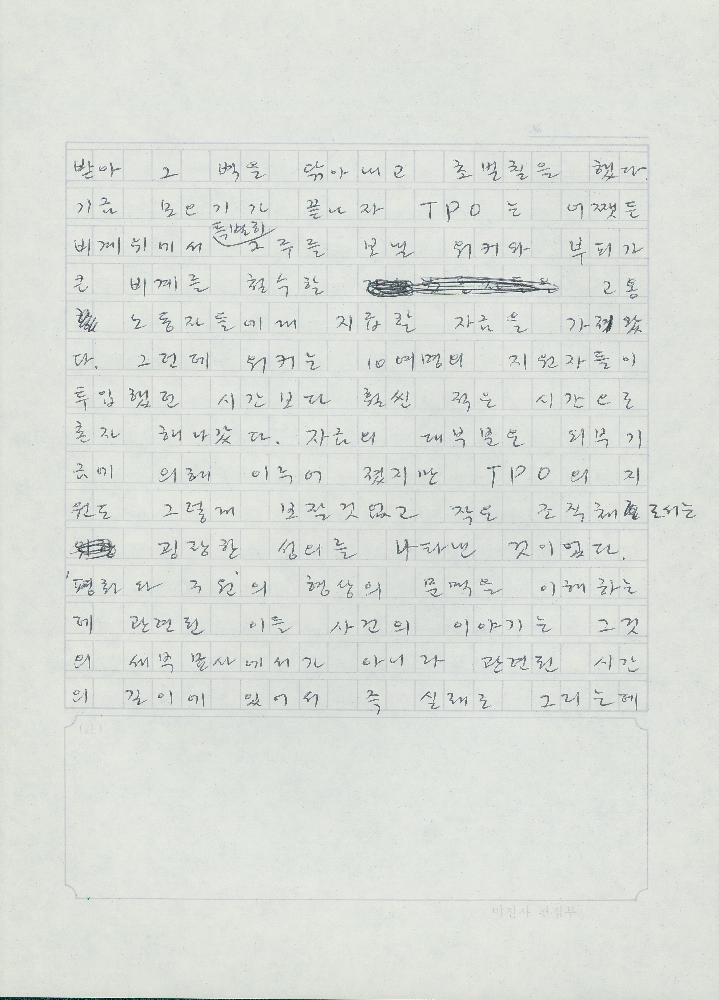 받아 그 벽을 닦아내고 초벌칠을 했다.
기금 모으기가 끝나자 TPO는 어쨋든
특별히
비계위에서 2주를 보낼 워커와 부피가
큰 비계를 철수할 고용
노동자들에게 지급할 자금을 가져왔
다. 그런데 워커는 10여명의 지원자들이
투입했던 시간보다 훨씬 적은 시간으로
혼자 해나갔다. 자금의 대부분은 외부기
금에 의해 이루어 졌지만 TPO의 지
원도 그렇게 보잘것없고 작은 조직체로서는
굉장한 성의를 나타낸 것이었다.
'평화와 구원'의 형상의 문맥을 이해하는
데 관련된 이들 사건의 이야기는 그것
의 세부묘사에서가 아니라 관련된 시간
의 길이에 있어서 즉 실례로 그리는데
미진사 편집부